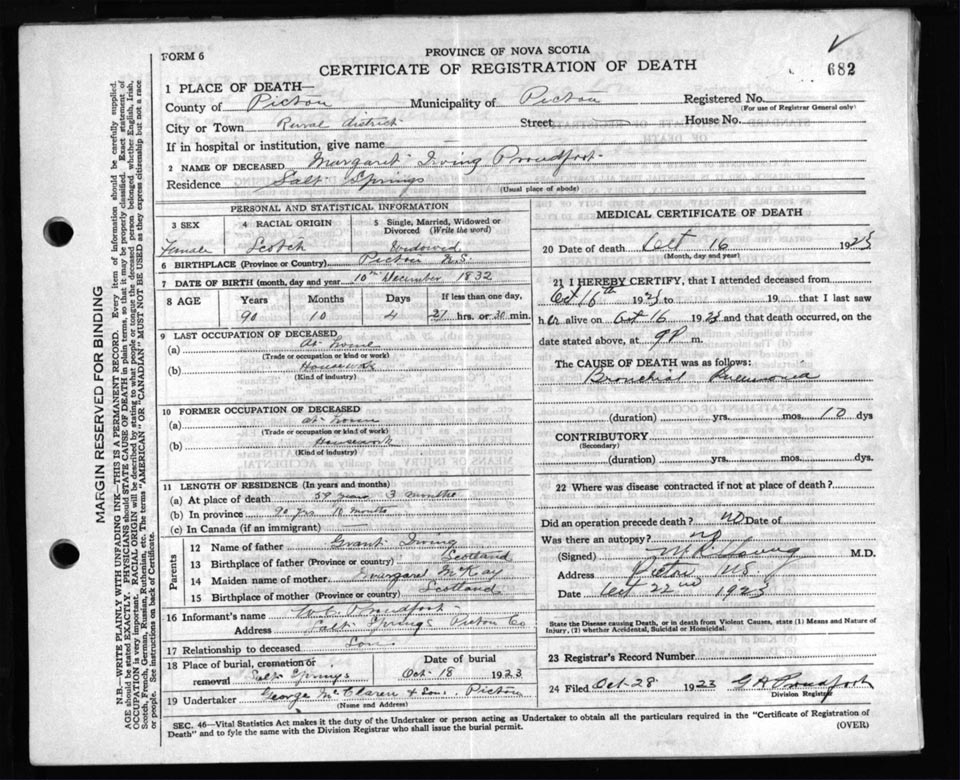 PROVINCE OF NOVA SCOTIA
FORM 6
CERTIFICATE OF REGISTRATION OF DEATH
682
1 PLACE OF DEATH—
County of Pictou Municipality of Pictou Registered No.
(For use of Registrar General only)
City or Town Rural district Street House No.
If in hospital or institution, give name
2 NAME OF DECEASED Margaret Irving Proudfoot
Residence Salt Springs
(Usual place of abode)
PERSONAL AND STATISTICAL INFORMATION
3 SEX 4 RACIAL ORIGIN 5 Single, Married, Widowed or Divorced (Write the word)
Female Scotch Widowed
6 BIRTHPLACE (Province or Country) Pictou N.S.
7 DATE OF BIRTH (month, day and year) 10th December 1832
8 AGE Years Months Days If less than one day,
90 10 4 21 hrs. or 30 min.
9 LAST OCCUPATION OF DECEASED
(a) At home
(Trade or occupation or kind or work)
(b) Housework
(Kind of industry)
10 FORMER OCCUPATION OF DECEASED
(a) at home
(Trade or occupation or kind of work)
(b) Housework
(Kind of industry)
11 LENGTH OF RESIDENCE (In years and months)
(a) At place of death 59 years 3 months
(b) In province 90 yrs 10 months
(c) In Canada (if an immigrant)
Parents
12 Name of father Grant Irving
13 Birthplace of father (Province or country) Scotland
14 Maiden name of mother Margaret McKay
15 Birthplace of mother (Province or country) Scotland
16 Informant's name Proudfoot
Address Salt Springs Pictou Co
17 Relationship to deceased Son
18 Place of burial, cremation or removal Salt Springs Date of burial Oct 18 1923
19 Undertaker George McClaren & Son, Pictou
(Name and Address)
MEDICAL CERTIFICATE OF DEATH
20 Date of death Oct 16 1923
(Month, day and year)
21 I HEREBY CERTIFY, that I attended deceased from
Oct 16th 1923 to 19 that I last saw
her alive on Oct 16 1923 and that death occurred, on the
date stated above, at 9P m.
The CAUSE OF DEATH was as follows:
Bronchial Pneumonia
(duration) yrs. mos. 10 dys
CONTRIBUTORY
(Secondary)
(duration) yrs. mos. dys.
22 Where was disease contracted if not at place of death?
Did an operation precede death? no Date of
Was there an autopsy? no
(Signed) Young M.D.
Address Pictou N.S.
Date Oct 22nd 1923
State the Disease causing Death, or in death from Violent Causes, state (1) Means and Nature of Injury, (2) whether Accidental, Suicidal or Homicidal.
23 Registrar's Record Number
24 Filed Oct 28 1923 G H Proudfoot
Division Registrar
SEC. 46—Vital Statistics Act makes it the duty of the Undertaker or person acting as Undertaker to obtain all the particulars required in the "Certificate of Registration of
Death" and to fyle the same with the Division Registrar who shall issue the burial permit. (OVER)
MARGIN RESERVED FOR BINDING
N.B.—WRITE PLAINLY WITH UNFADING INK—THIS IS A PERMANENT RECORD. Every item of information should be carefully supplied.
AGE should be stated EXACTLY. PHYSICIANS should STATE CAUSE OF DEATH in plain terms, so that it may be properly classified. Exact statement of
OCCUPATION is very important. RACIAL ORIGIN will be described by stating to what people or tongue the deceased person belonged whether English, Irish,
Scotch, French, German, Russian, Ruthenian, etc. The terms "AMERICAN" OR "CANADIAN" MUST NOT BE USED as they express citizenship but not a race
or people. See instructions on back of Certificate.